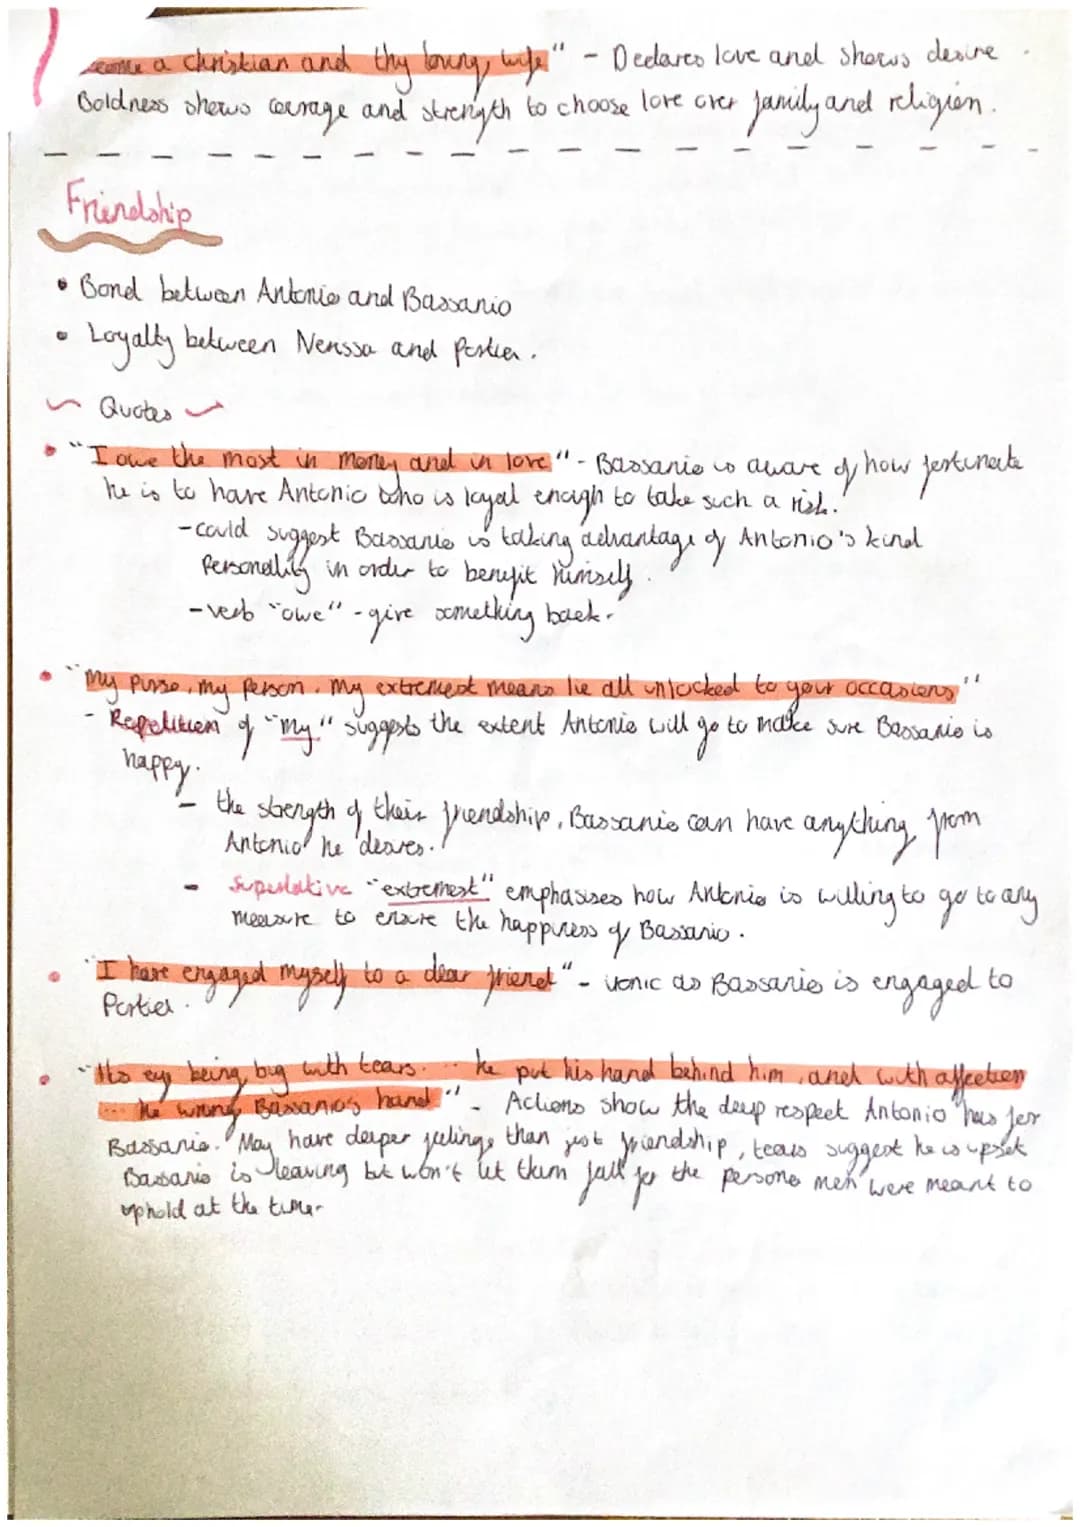 become a christian and thy loving wife" - Declares love and shows desire.
Boldness shows courage and strength to choose love over family and religion.
Friendship
• Bond between Antonio and Bassanio
• Loyalty between Nerissa and Portia.
~ Quotes ~
• "I owe the most in money and in love" - Bassanio is aware of how fortunate
he is to have Antonio who is loyal enough to take such a risk.
- could suggest Bassanio is taking advantage of Antonio's kind
Personality in order to benefit himself.
- verb "owe" - give something back.
• "My purse, my person, my extremest means lie all unlocked to your occasions"
- Repetition of "my" suggests the extent Antonio will go to make sure Bassanio is
happy.
- the strength of their friendship, Bassanio can have anything from
Antonio he desires.
- Superlative "extremest" emphasises how Antonio is willing to go to any
measure to ensure the happiness of Bassanio.
• "I have engaged myself to a dear friend" - ironic as Bassanio is engaged to
Portia.
• "His eye being big with tears... he put his hand behind him, and with affection
... he wrung Bassanio's hand" - Actions show the deep respect Antonio has for
Bassanio. May have deeper feelings than just friendship, tears suggest he is upset
Bassanio is leaving but won't let them fall for the persona men were meant to
uphold at the time.